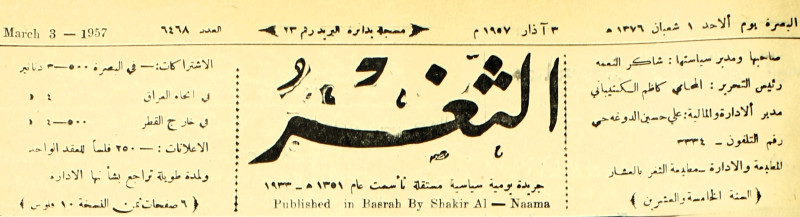 البصرة يوم الاحد ١ شعبان ١٣٧٦ ه
٣ آذار ١٩٥٧ م
﴿ مسجلة بدائرة البريد رقم ٢٣ ﴾
العدد ٦٤٦٨
March 3 — 1957
صاحبها ومدير سياستها : شاكر النعمه
رئيس التحرير : المحامي كاظم الكشيباني
مدير الادارة والمالية : علي حسين الدوغه جي
رقم التلفون — ٣٣٣٤
المطبعة والادارة — مطبعة الثغر بالعشار
﴿ السنة الخامسة والعشرين ﴾
الثغر
جريدة يومية سياسية مستقلة تأسست عام ١٣٥١ ه — ١٩٣٣
Published in Basrah By Shakir Al — Naama
الاشتراكات :— في البصرة ٥٠٠—٣ دنانير
في انحاء العراق ٤ »
في خارج القطر ٥٠٠—٤ »
الاعلانات :— ٢٥٠ فلساً للعقد الواحد
ولمدة طويلة تراجع بشأنها الادارة
﴿ ٦ صفحات ثمن النسخة ١٠ فلوس ﴾